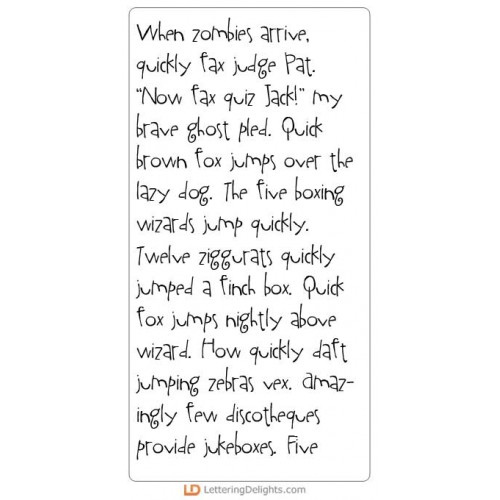 When zombies arrive,
quickly fax judge Pat.
“Now fax quiz Jack!” my
brave ghost pled. Quick
brown fox jumps over the
lazy dog. The five boxing
wizards jump quickly.
Twelve ziggurats quickly
jumped a finch box. Quick
fox jumps nightly above
wizard. How quickly daft
jumping zebras vex. Amaz-
ingly few discotheques
provide jukeboxes. Five
LD LetteringDelights.com